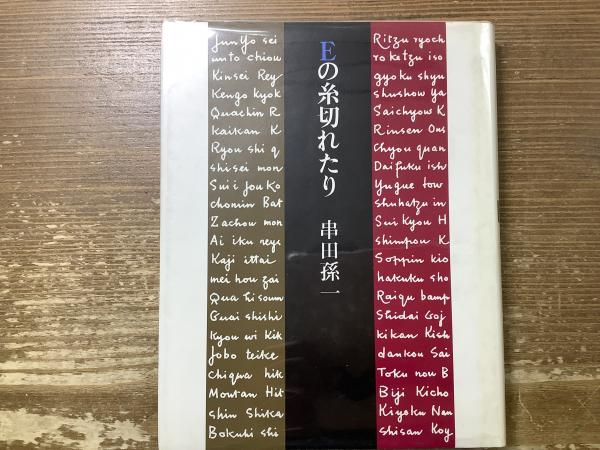 Eの糸切れたり
串田孫一
Jun Yo sei
unto chiou
Kinsei Rey
Kengo kyok
Quachin R
kaikan K
Ryou shi q
shi sei mon
Sui i jou Ko
chonin Bat
Zachou mon
Ai iku reye
Kaji ittai
mei hou zai
Qua hi soum
Guai shishi
Kyou wi Kik
Jobo teike
chiqua hik
Moutan Hit
shin Shika
Bokuhi shi
Ritzu ryoch
ro katzu iso
gyoku shyu
shushow Ya
Saichyow K
Rinsen Ous
Chyou quan
Daifuku ish
Yugue tow
shuhatzu in
Sui kyou H
shimpou K
Soppin kio
hakuku sho
Raiqu bamp
Shidai Goj
kikan Kish
dankou Sai
Toku nou B
Biji Kicho
Kiyoku Nan
shisan Koy